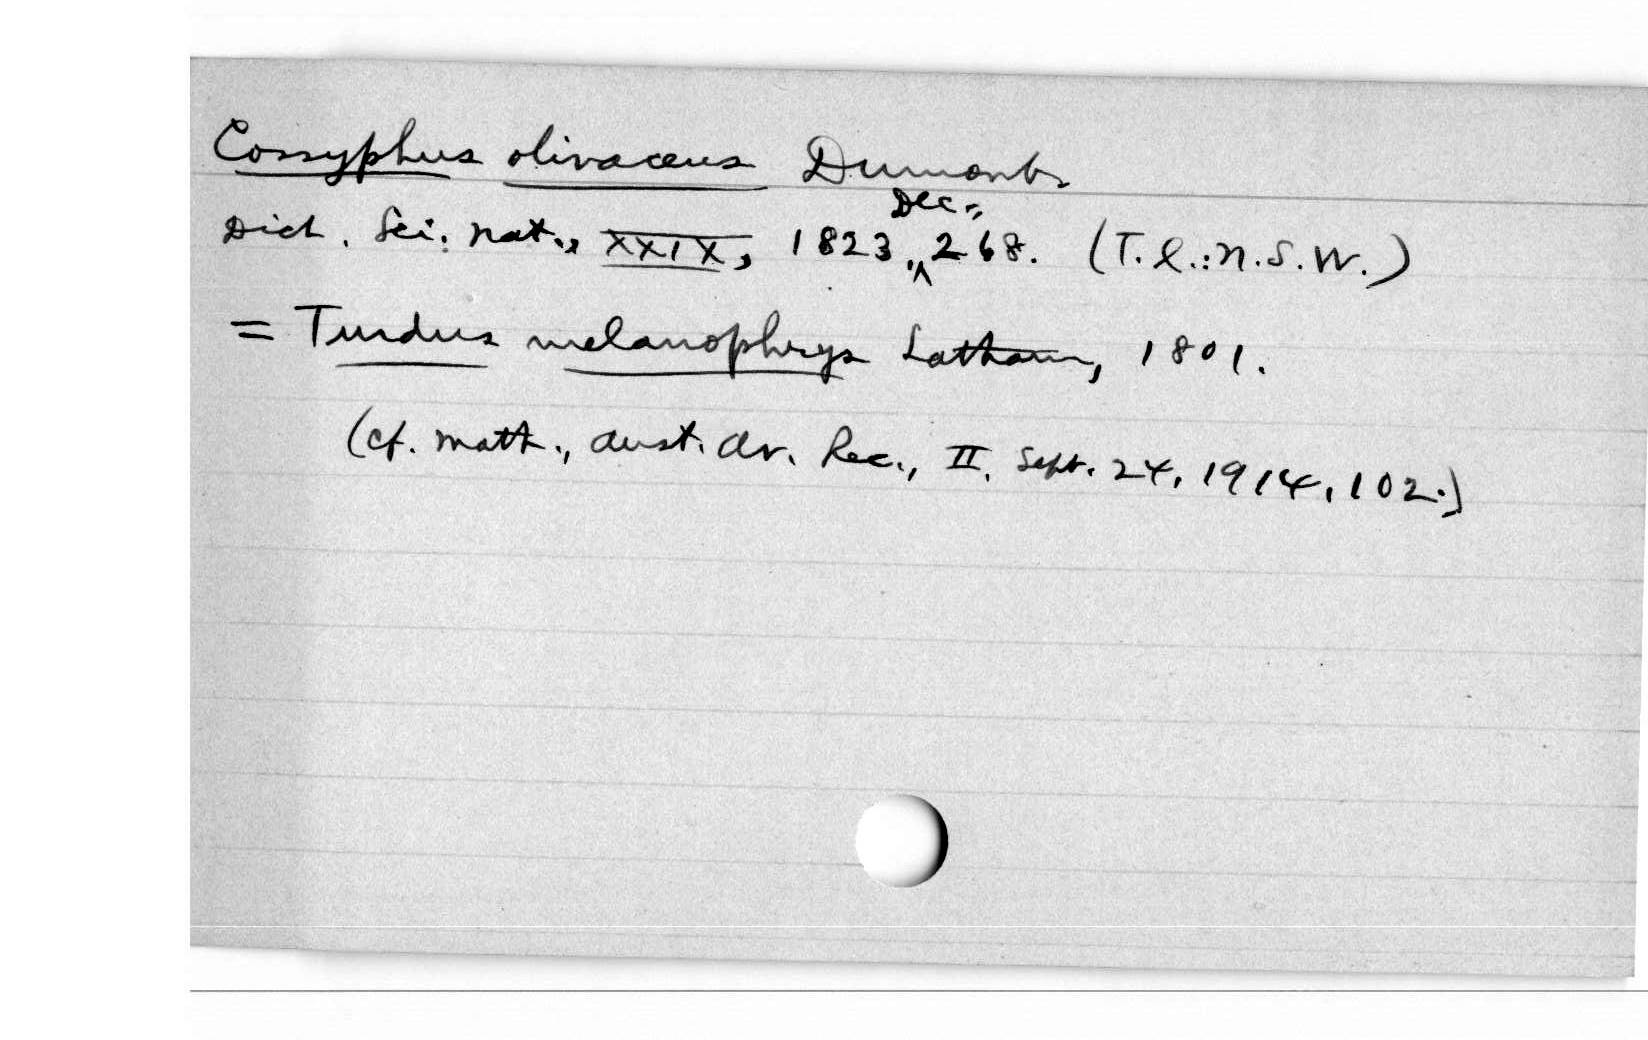 Cossyphus olivaceus Dumont
Dict. Sci. Nat., XXIX, 1823, Dec., 268. (T.l.: N.S.W.)
= Turdus melanophrys Latham, 1801.
(cf. Math., Aust. Av. Rec., II, Sept. 24, 1914, 102.)